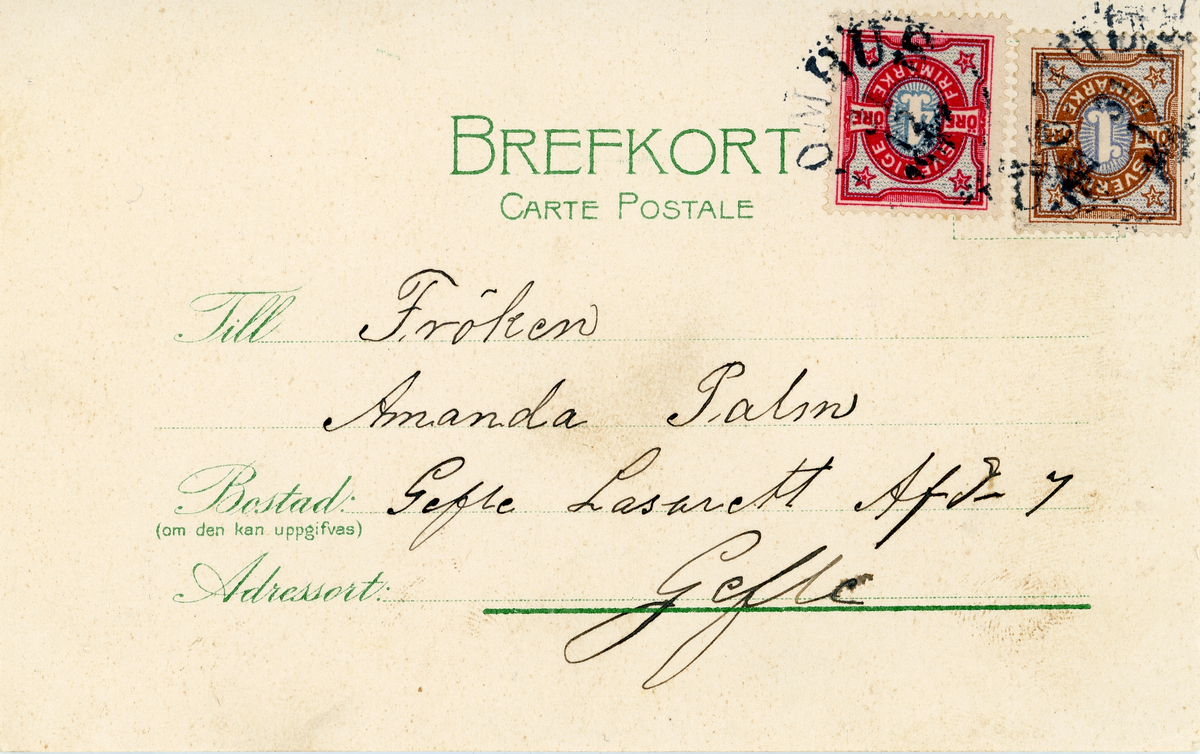 BREFKORT
CARTE POSTALE
SVERIGE FRIMÄRKE
ÖRE 1 ÖRE
FRIMÄRKE
1 ÖRE
Till Fröken
Amanda Palm
Bostad: Gefle Lasarett Afd 7
(om den kan uppgifvas)
Adressort: Gefle